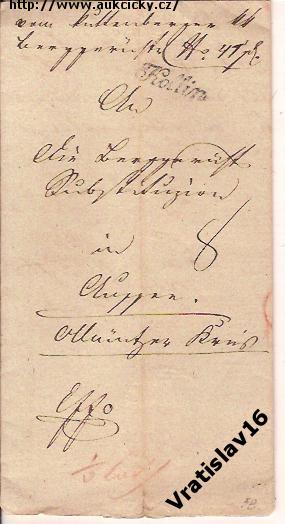 http://www.aukcicky.cz/
vom Kuttenberger k k
Berggerichte No. 47
Kollin
An
die Berggerichts
Substituzion
in 8
Auspee.
Ollmützer Kreis
Exoffo
Vratislav16